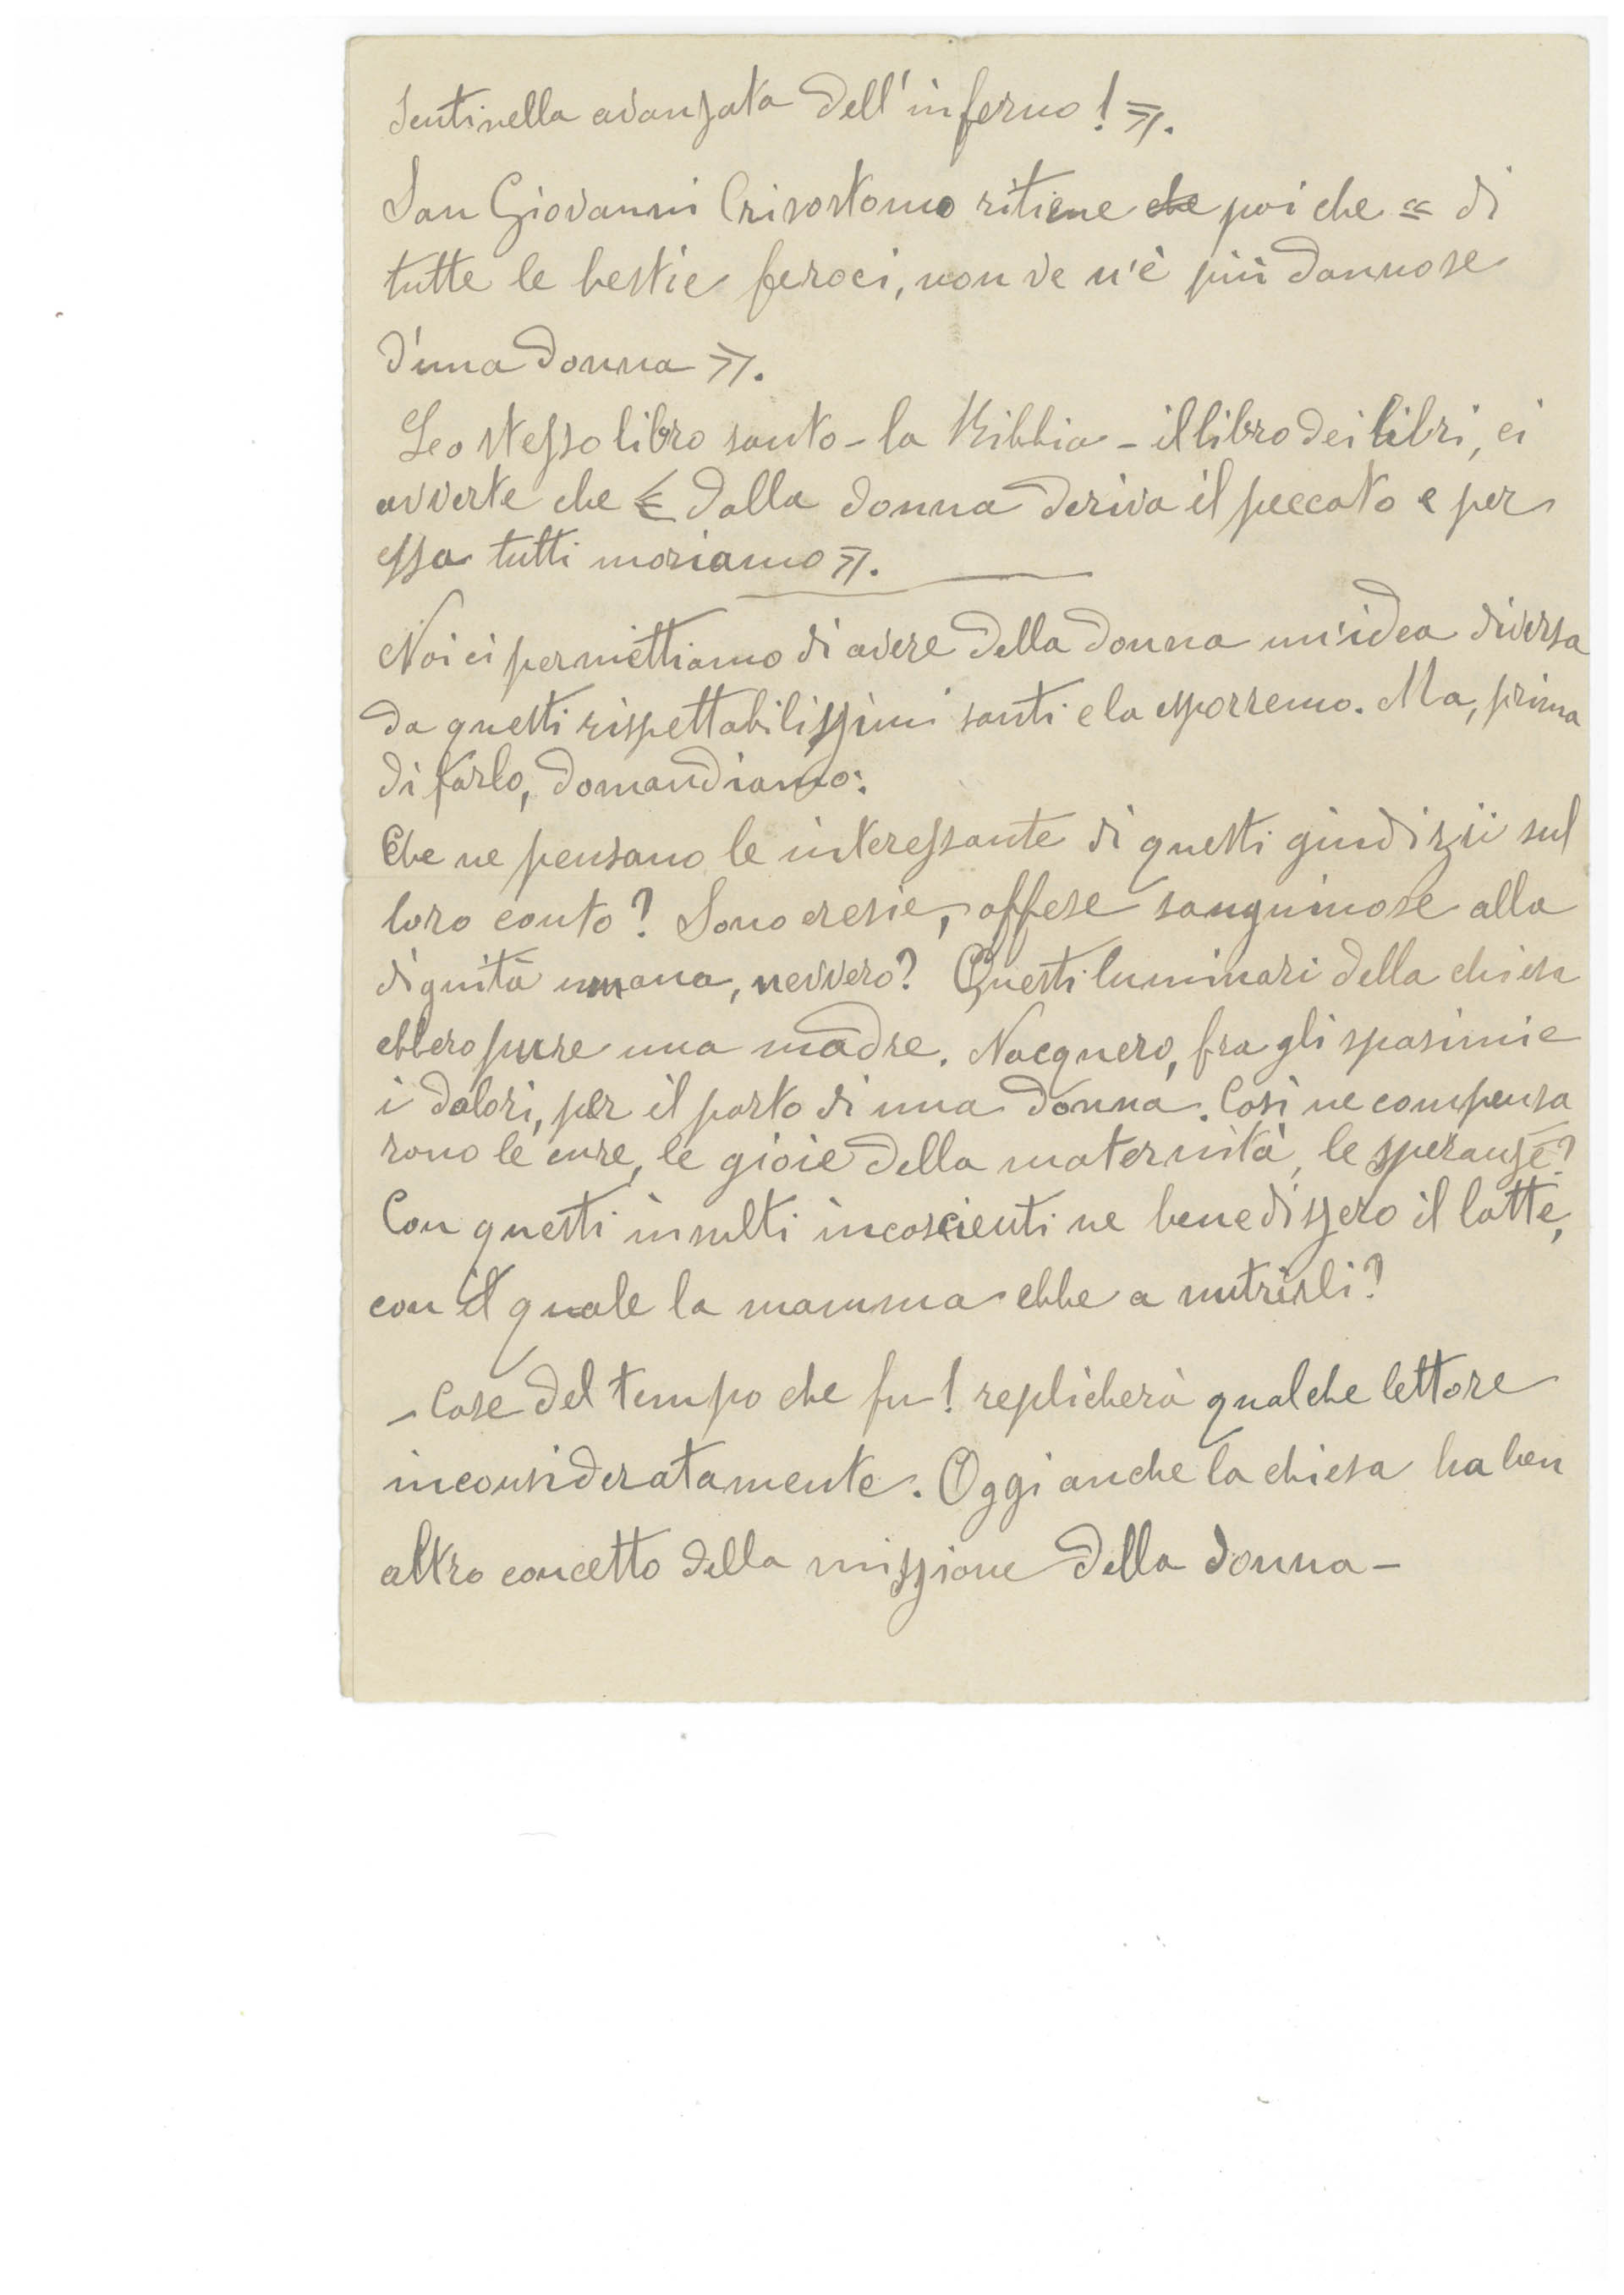 Sentinella avanzata dell'inferno! ».
San Giovanni Crisostomo ritiene che poi che « di
tutte le bestie feroci, non ve n'è più dannose
d'una donna ».
Lo stesso libro santo - la Bibbia - il libro dei libri, ci
avverte che « dalla donna deriva il peccato e per
essa tutti moriamo ».
Noi ci permettiamo di avere della donna un'idea diversa
da questi rispettabilissimi santi e la esporremo. Ma, prima
di farlo, domandiamo:
Che ne pensano le interessante di questi giudizii sul
loro conto? Sono eresie, offese sanguinose alla
dignità umana, nevvero? Questi luminari della chiesa
ebbero pure una madre. Nacquero, fra gli spasimi e
i dolori, per il parto di una donna. Così ne compensa
rono le cure, le gioie della maternità, le speranze?
Con questi insulti incoscienti ne benedissero il latte,
con il quale la mamma ebbe a nutrirli?
- Cose del tempo che fu! replicherà qualche lettore
inconsideratamente. Oggi anche la chiesa ha ben
altro concetto della missione della donna -